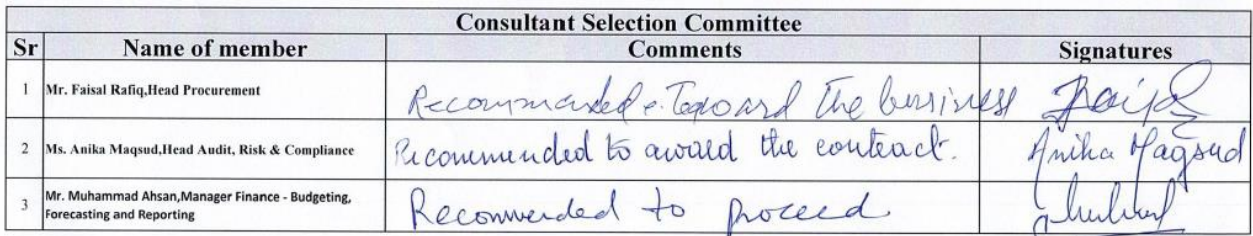 Consultant Selection Committee
Sr Name of member Comments Signatures
1 Mr. Faisal Rafiq,Head Procurement Recommended the business
2 Ms. Anika Maqsud,Head Audit, Risk & Compliance Recommended to award the contract. Anika Maqsud
3 Mr. Muhammad Ahsan,Manager Finance - Budgeting,
Forecasting and Reporting Recommended to proceed